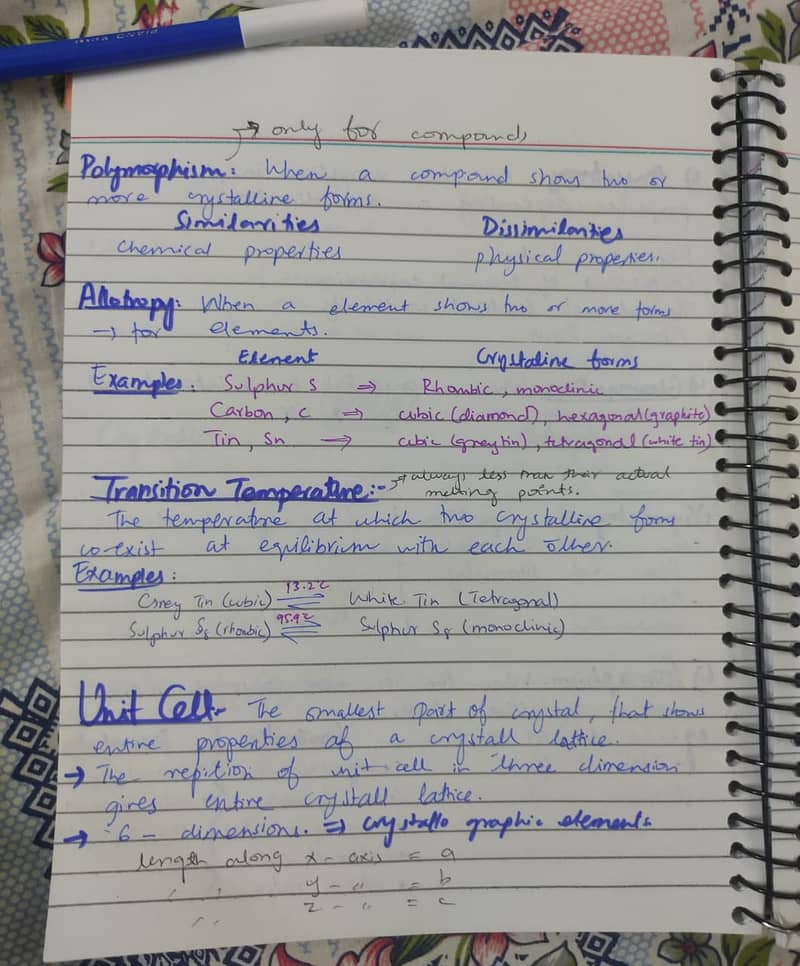 → only for compounds
Polymorphism: When a compound shows two or
more crystalline forms.
Similarities Dissimilarities
chemical properties physical properties.
Allotropy: When a element shows two or more forms
→ for elements.
Element Crystaline forms
Examples: Sulphur S ⇒ Rhombic, monoclinic
Carbon, C ⇒ cubic (diamond), hexagonal (graphite)
Tin, Sn → cubic (grey tin), tetragonal (white tin)
Transition Temperature:- → always less than their actual
melting points.
The temperature at which two crystalline forms
co-exist at equilibrium with each other.
Examples:
Grey Tin (cubic) 13.2℃ ⇌ White Tin (Tetragonal)
Sulphur S8 (rhombic) 95.9℃ ⇌ Sulphur S8 (monoclinic)
Unit Cell:- The smallest part of crystal, that shows
entire properties of a crystall lattice.
→ The repition of unit cell in three dimension
gives entire crystall lattice.
→ 6 - dimensions. ⇒ crystallo graphic elements
length along x - axis = a
" " y - " = b
" " z - " = c